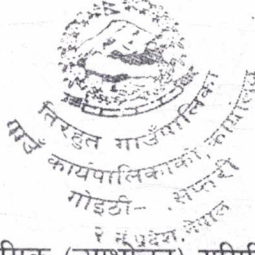 तिरहुत गाउँपालिका
गाउँ कार्यपालिकाको, कार्यालय
गोइठी- सप्तरी
२ नं प्रदेश, नेपाल